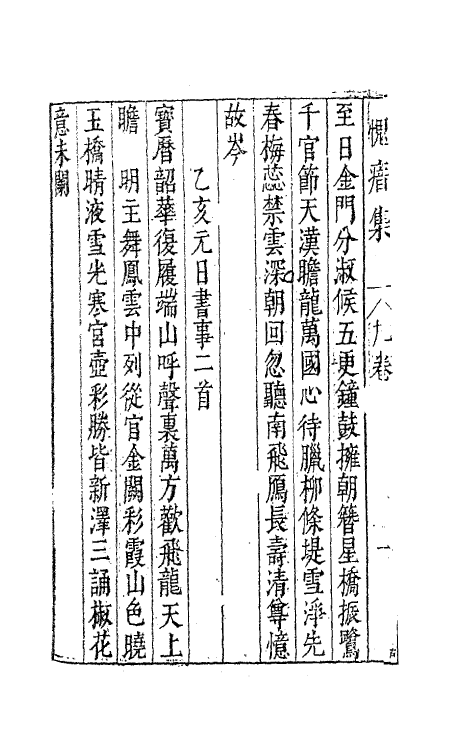 愧瘖集 八九卷 一
至日金門分淑候五更鐘鼓擁朝簪星橋振鷺
千官節天漢瞻龍萬國心待臘柳條堤雪淨先
春梅蕊禁雲深朝回忽聽南飛鴈長壽清尊憶
故岑
乙亥元日書事二首
寶曆韶華復履端山呼聲裏萬方歡飛龍天上
瞻 明主舞鳳雲中列從官金闕彩霞山色曉
玉橋晴液雪光寒宮壺彩勝皆新澤三誦椒花
意未闌